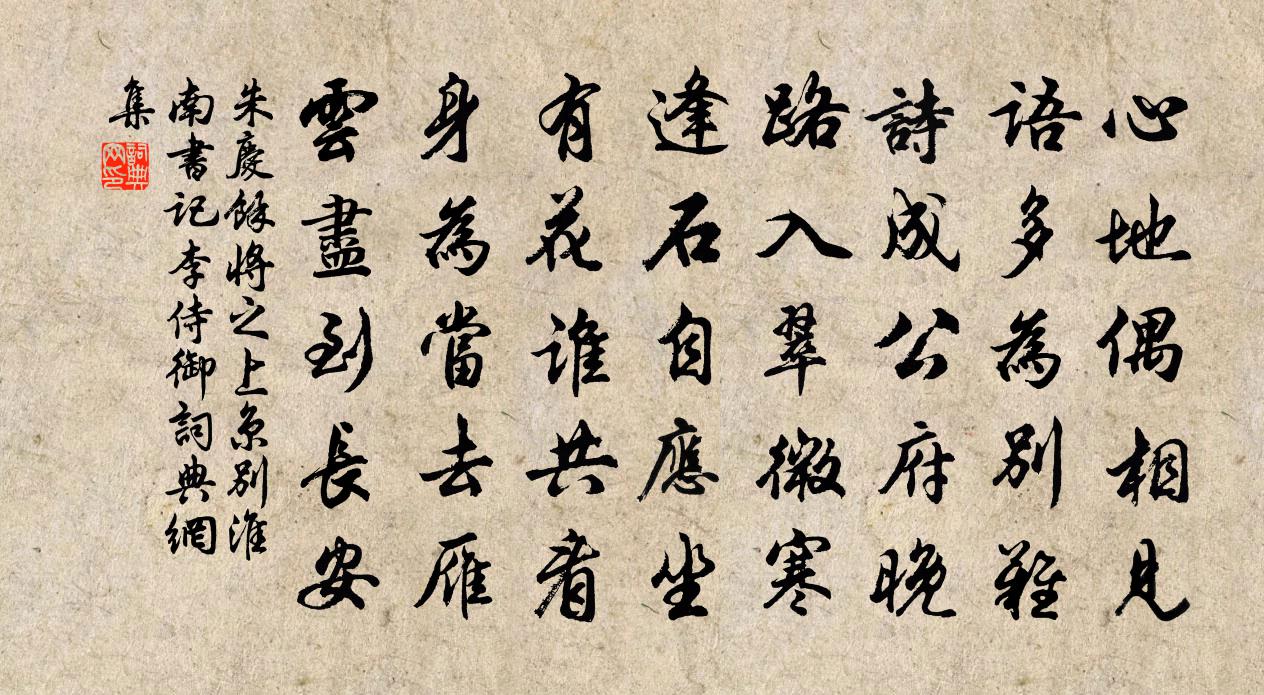 心地偶相見
語多為別難
詩成公府晚
路入翠微寒
逢石自應坐
有花誰共看
身為當去雁
雲盡到長安
朱慶餘將之上京別淮
南書記李侍御詞典網
集
詞典
网印